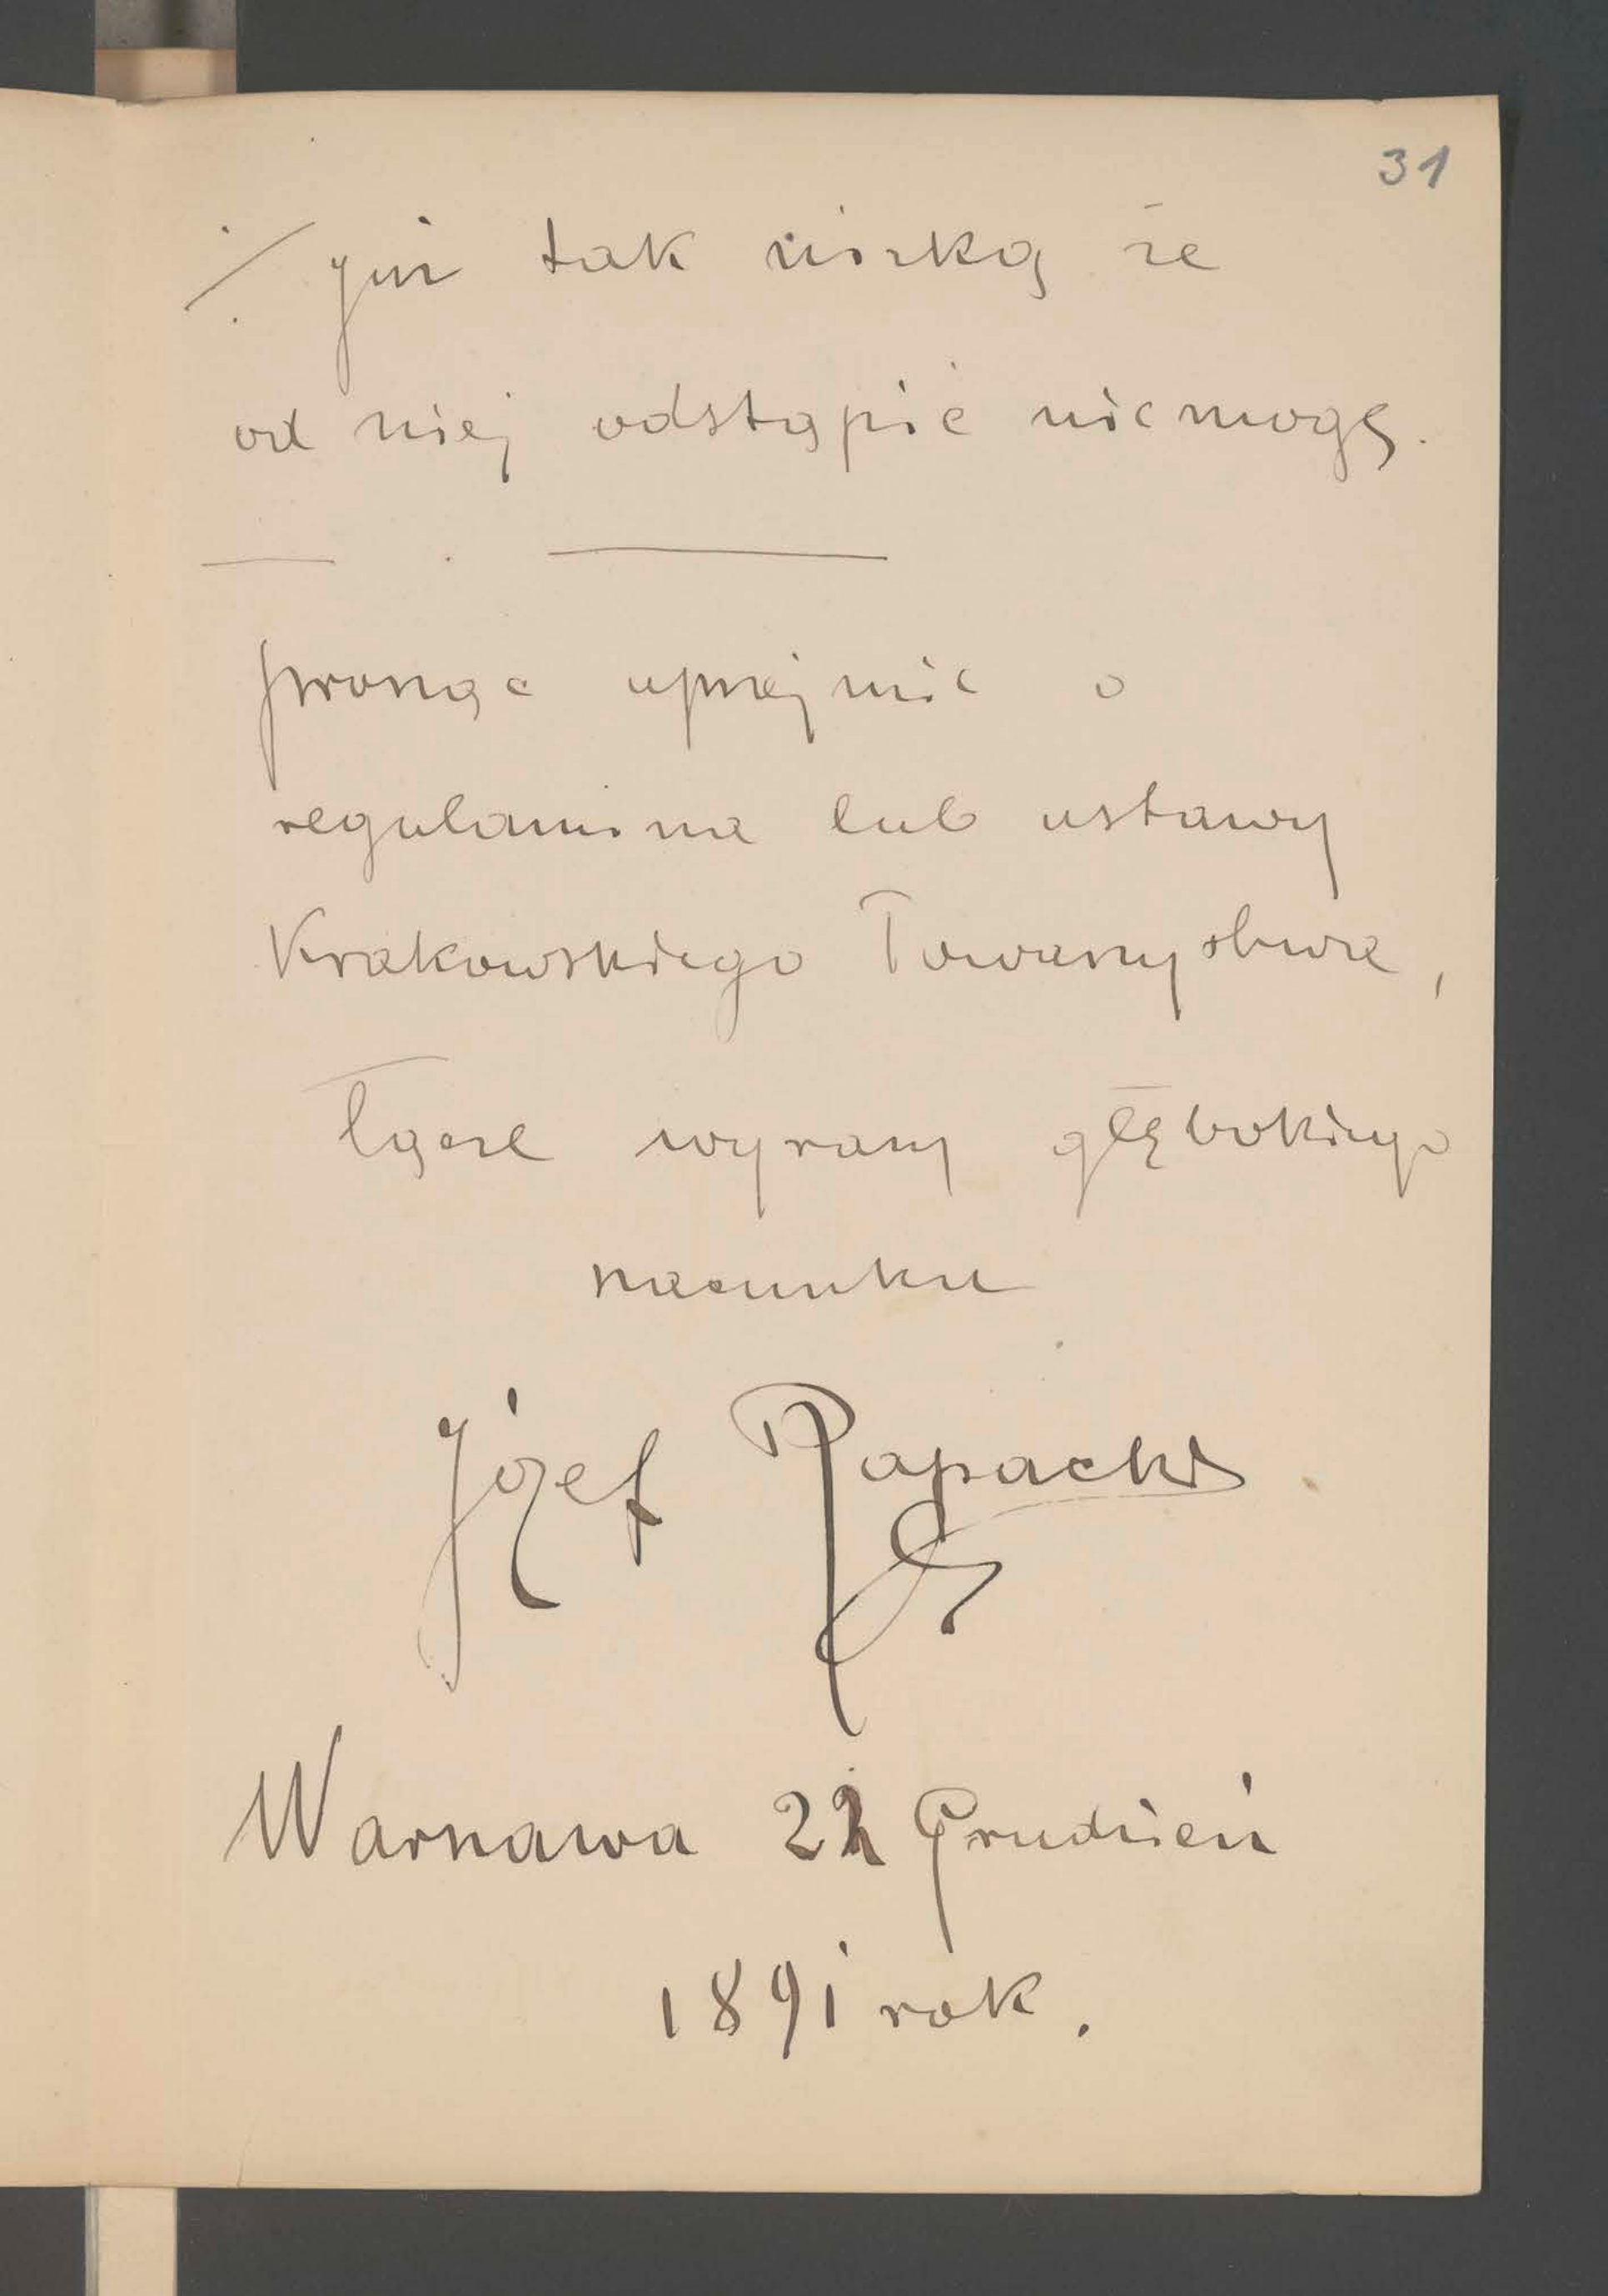 31
./. już tak nizką że
od niej odstąpić nie mogę.
prosząc uprzejmie o
regulamina lub ustawy
Krakowskiego Towarzystwa,
łącze wyrazy głębokiego
szacunku
Józef Rapacki
Warszawa 22 Grudzień
1891 rok.